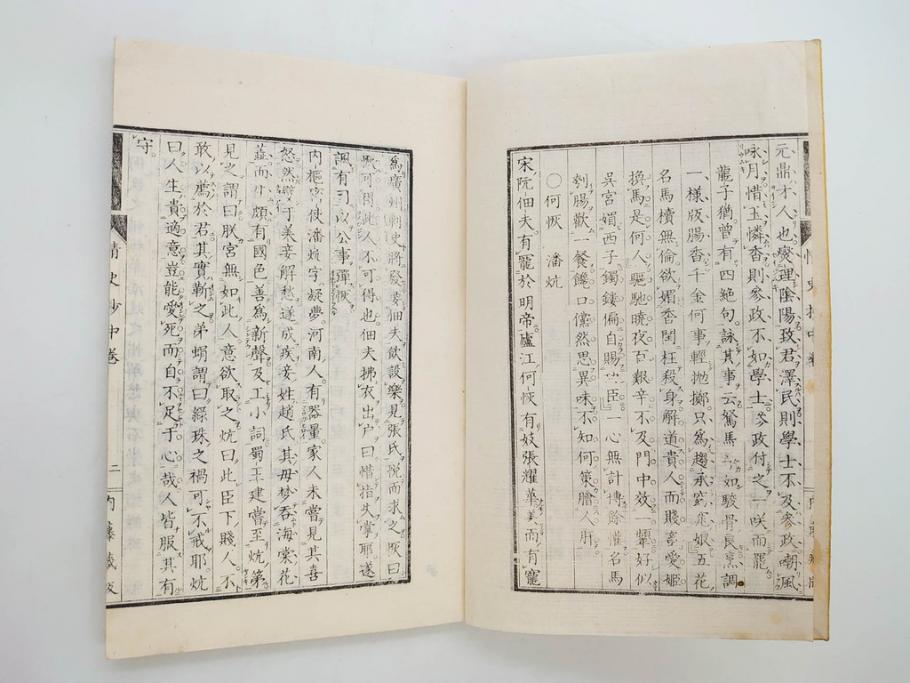 元鼎才人也燮理陰陽致君澤民則學士不及參政嘲風
咏月惜玉憐香則參政不如學士參政付之一咲而罷
龍子猶曾有四絕句詠其事云駑馬如駿骨良烹調
一樣版腸香千金何事輕抛擲只爲趨承窈窕娘五花
名馬櫝無倫欲媚香閨枉殺身解道貴人而賤畜愛姬
換馬是何人驅馳曉夜百艱辛不及門中效一顰好似
吳宮媚西子鐲鏤偏自賜忠臣一心無計博餘懽名馬
刳腸歡一餐饞口儻然思異味不知何策膾人肝
○何恢 潘炕
宋阮佃夫有寵於明帝廬江何恢有妓張耀華美而有寵
爲廣州刺史將發要佃夫飲設樂見張氏悅而求之恢曰
恢可得此人不可得也佃夫拂衣出戶曰惜指失掌耶遂
諷有司以公事彈恢
内樞密使潘炕字凝夢河南人有器量家人未嘗見其喜
怒然嬖于美妾解愁遂成疾妾姓趙氏其母夢吞海棠花
蕋而小頗有國色善爲新聲及工小詞蜀王建嘗至炕第
見之謂曰朕宮無如此人意欲取之炕曰此臣下賤人不
敢以薦於君其實靳之弟蝟謂曰綠珠之禍可不戒耶炕
曰人生貴適意豈能愛死而自不足于心哉人皆服其有
守
情史抄中卷 二 内藤藏版